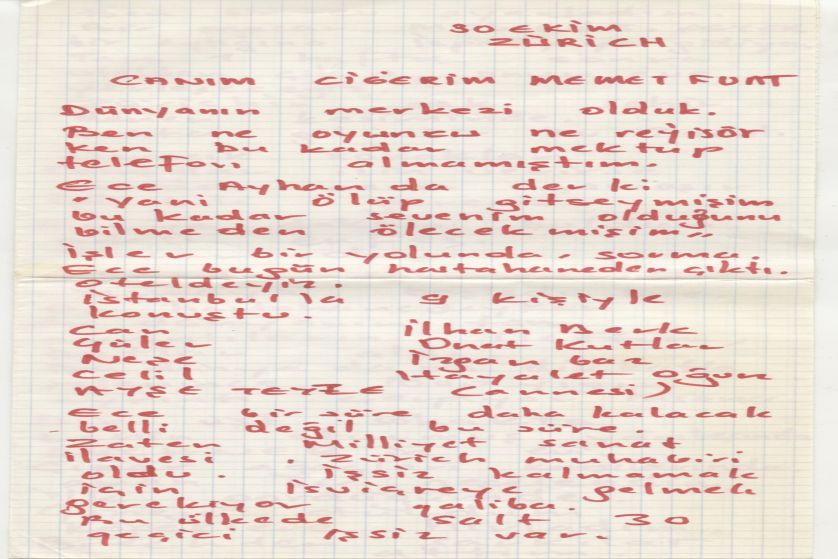 30 EKİM
ZÜRİCH
CANIM CİĞERİM MEMET FUAT
Dünyanın merkezi olduk.
Ben ne oyuncu ne rejisör
ken bu kadar mektup
telefon almamıştım.
Ece Ayhan da der ki:
"yani ölüp gitseymişim
bu kadar sevenim olduğunu
bilmeden ölecekmişim"
İşler bir yolunda, sorma.
Ece bugün hastahaneden çıktı.
oteldeyiz.
İstanbul'la 9 kişiyle
konuştu.
Can İlhan Berk
Güler Onat Kutlar
Neşe
Celil Hayalet Oğuz
AYŞE TEYZE Cannesi)
Ece bir süre daha kalacak
belli değil bu süre.
Zaten Milliyet sanat
ilavesi . Zürich muhabiri
oldu. İşsiz kalmamak
için İsviçreye gelmek
gerekiyor galiba.
Bu ülkede salt 30
geçici işsiz var.